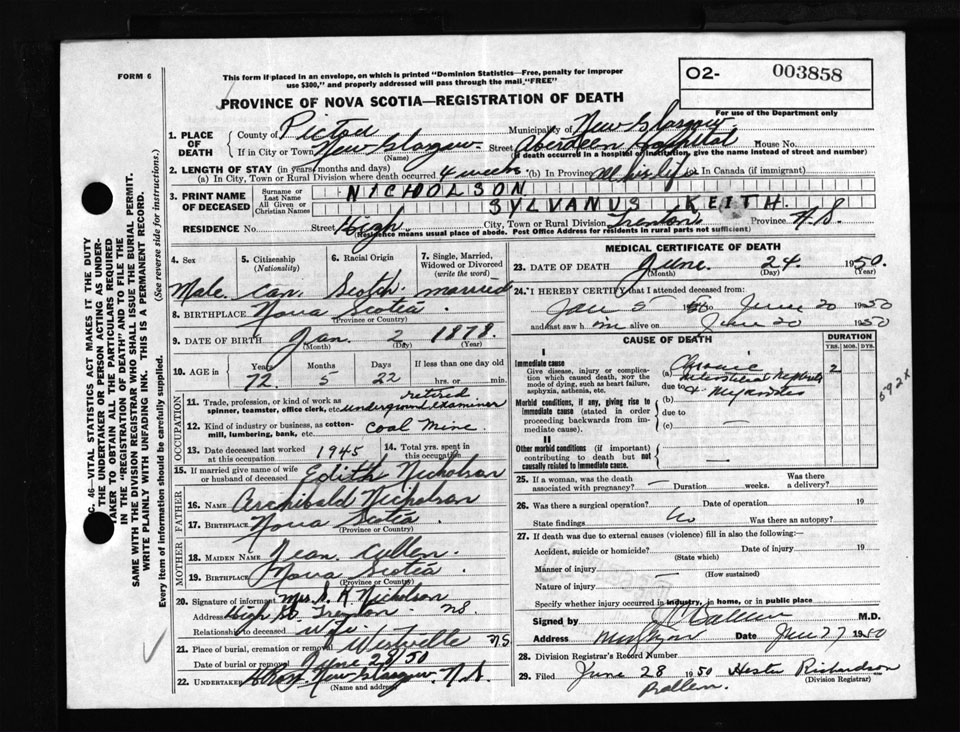 FORM 6
This form if placed in an envelope, on which is printed "Dominion Statistics—Free, penalty for improper
use $300," and properly addressed will pass through the mail "FREE"
O2- 003858
For use of the Department only
PROVINCE OF NOVA SCOTIA—REGISTRATION OF DEATH
1. PLACE OF DEATH County of Pictou Municipality of New Glasgow
If in City or Town New Glasgow (Name) Street Aberdeen Hospital House No.
(If death occurred in a hospital or institution, give the name instead of street and number)
2. LENGTH OF STAY (in years, months and days)
(a) In City, Town or Rural Division where death occurred 4 weeks (b) In Province all his life In Canada (if immigrant)
3. PRINT NAME OF DECEASED Surname or Last Name NICHOLSON
All Given or Christian Names SYLVANUS KEITH
RESIDENCE No. Street High City, Town or Rural Division Trenton Province N.S.
(Residence means usual place of abode. Post Office Address for residents in rural parts not sufficient)
4. Sex 5. Citizenship (Nationality) 6. Racial Origin 7. Single, Married, Widowed or Divorced (write the word)
Male Can. Scotch married
8. BIRTHPLACE Nova Scotia
(Province or Country)
9. DATE OF BIRTH Jan. 2 1878
(Month) (Day) (Year)
10. AGE in Years Months Days If less than one day old
72 5 22 hrs. or min.
OCCUPATION
11. Trade, profession, or kind of work as spinner, teamster, office clerk, etc. retired underground examiner
12. Kind of industry or business, as cotton-mill, lumbering, bank, etc. Coal Mine
13. Date deceased last worked at this occupation 1945 14. Total yrs. spent in this occupation
15. If married give name of wife or husband of deceased Edith Nicholson
FATHER
16. Name Archibald Nicholson
17. Birthplace Nova Scotia
(Province or Country)
MOTHER
18. Maiden Name Jean Cullen
19. Birthplace Nova Scotia
(Province or Country)
20. Signature of informant Mrs. S. K. Nicholson
Address High St. Trenton NS
Relationship to deceased Wife
21. Place of burial, cremation or removal Westville NS
Date of burial or removal June 28/50
22. Undertaker New Glasgow. N.S.
(Name and address)
MEDICAL CERTIFICATE OF DEATH
23. DATE OF DEATH June 24 1950
(Month) (Day) (Year)
24. I HEREBY CERTIFY that I attended deceased from:
Jan 5 to June 20 1950
and last saw him alive on June 20 1950
CAUSE OF DEATH DURATION
YRS. MOS. DYS.
I
Immediate cause
Give disease, injury or complication which caused death, NOT the mode of dying, such as heart failure, asphyxia, asthenia, etc.
(a) Chronic Interstitial Nephritis 2
due to
Morbid conditions, if any, giving rise to immediate cause (stated in order proceeding backwards from immediate cause).
(b)
due to
(c) —
II
Other morbid conditions (if important) contributing to death but not causally related to immediate cause. —
592X
25. If a woman, was the death associated with pregnancy? — Duration weeks. Was there a delivery?
26. Was there a surgical operation? Date of operation 19
State findings No Was there an autopsy?
27. If death was due to external causes (violence) fill in also the following:
Accident, suicide or homicide? Date of injury 19
(State which)
Manner of injury —
(How sustained)
Nature of injury
Specify whether injury occurred in industry, in home, or in public place
Signed by M.D.
Address Date June 27 1950
28. Division Registrar's Record Number
29. Filed June 28 1950 Hester Richardson
(Division Registrar)
C. 46—VITAL STATISTICS ACT MAKES IT THE DUTY
THE UNDERTAKER OR PERSON ACTING AS UNDER-
TAKER TO OBTAIN ALL THE PARTICULARS REQUIRED
IN THE "REGISTRATION OF DEATH" AND TO FILE THE
SAME WITH THE DIVISION REGISTRAR WHO SHALL ISSUE THE BURIAL PERMIT.
WRITE PLAINLY WITH UNFADING INK. THIS IS A PERMANENT RECORD.
Every item of information should be carefully supplied. (See reverse side for instructions.)